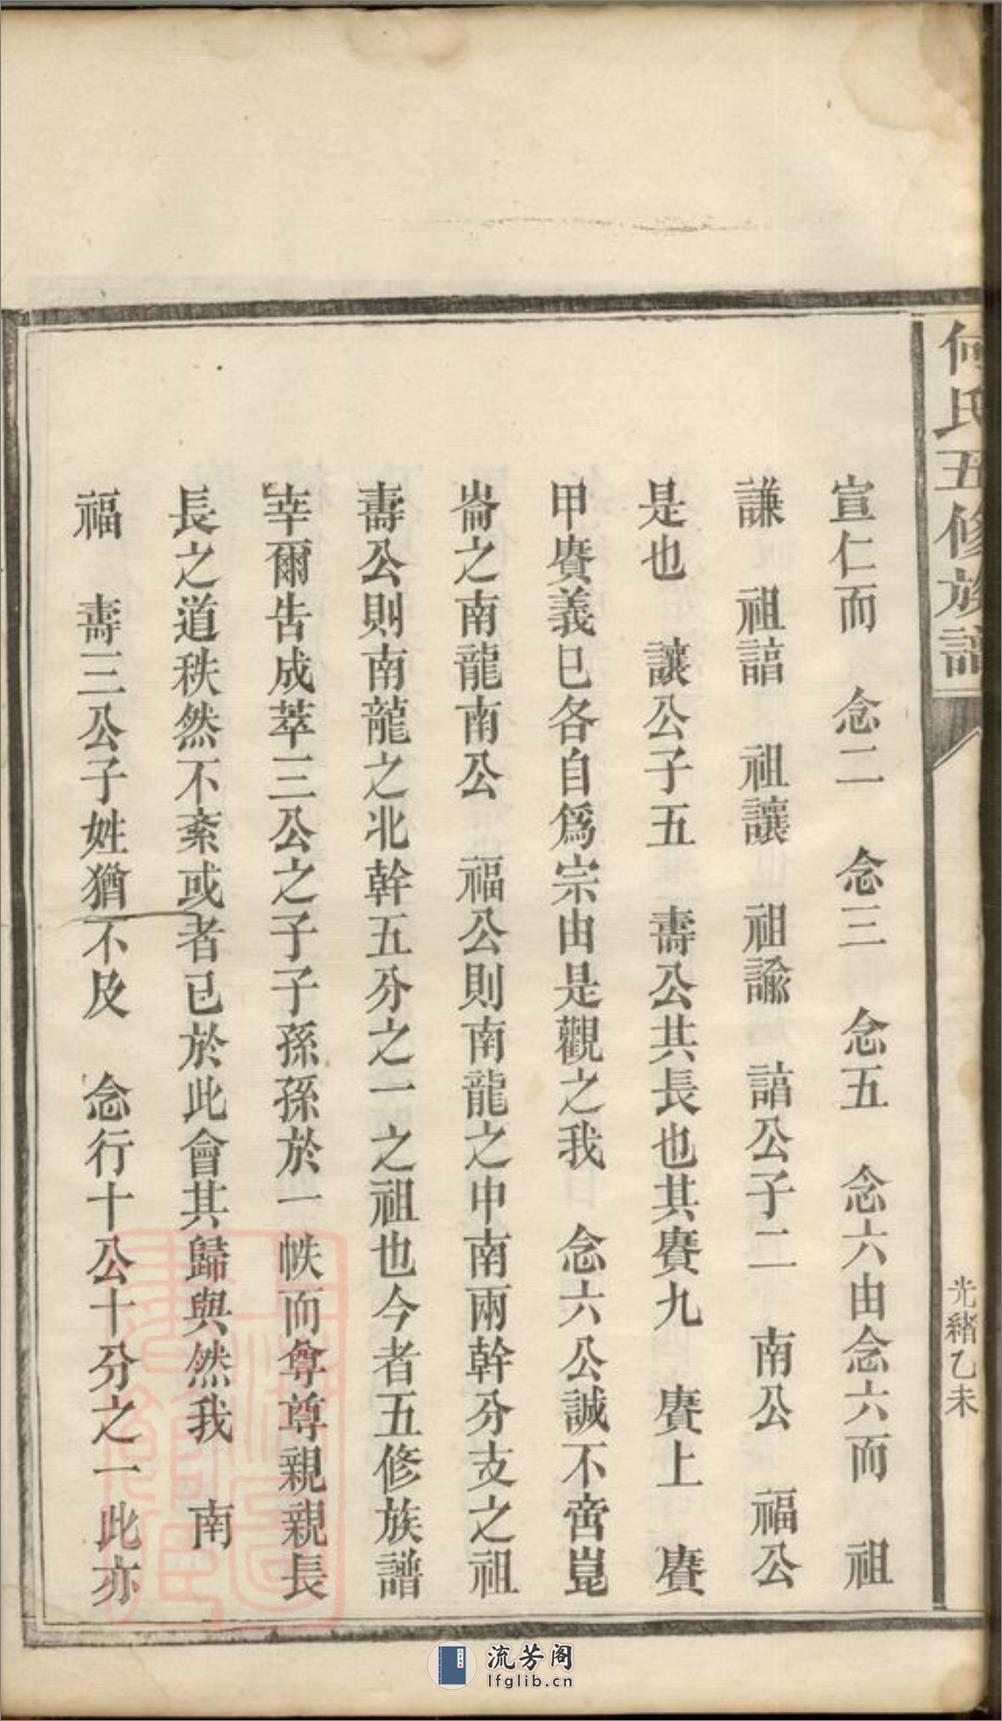 何氏五修族譜
光緒乙未
宣仁而　念二　念三　念五　念六由念六而　祖
謙　祖諳　祖讓　祖諭　諳公子二　南公　福公
是也　讓公子五　壽公其長也其賡九　賡上　賡
甲賡義已各自爲宗由是觀之我　念六公誠不啻崑
崙之南龍南公　福公則南龍之中南兩幹分支之祖
壽公則南龍之北幹五分之一之祖也今者五修族譜
幸爾告成萃三公之子子孫孫於一帙而尊尊親親長
長之道秩然不紊或者已於此會其歸與然我　南
福　壽三公子姓猶不及　念行十公十分之一此亦
流芳阁
lfglib.cn